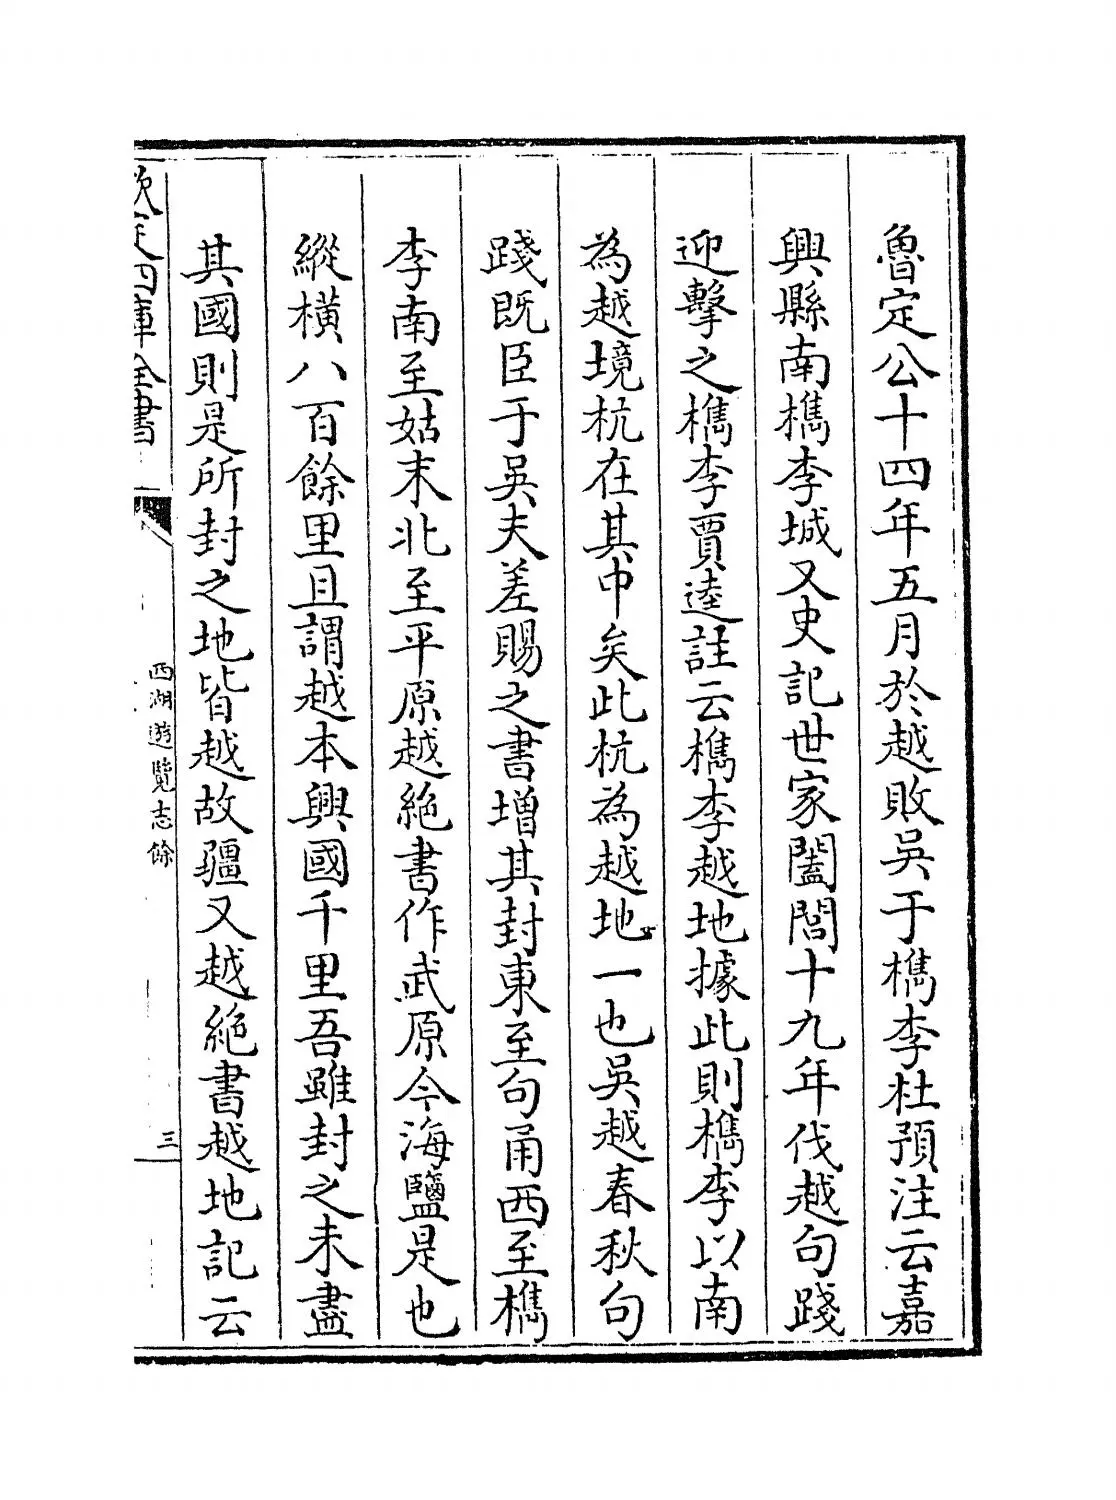 魯定公十四年五月於越敗吳于檇李杜預注云嘉
興縣南檇李城又史記世家闔閭十九年伐越句踐
迎擊之檇李賈逵註云檇李越地據此則檇李以南
為越境杭在其中矣此杭為越地一也吳越春秋句
踐既臣于吳夫差賜之書增其封東至句甬西至檇
李南至姑末北至平原越絶書作武原今海鹽是也
縱橫八百餘里且謂越本興國千里吾雖封之未盡
其國則是所封之地皆越故疆又越絶書越地記云
欽定四庫全書
西湖遊覽志餘
三